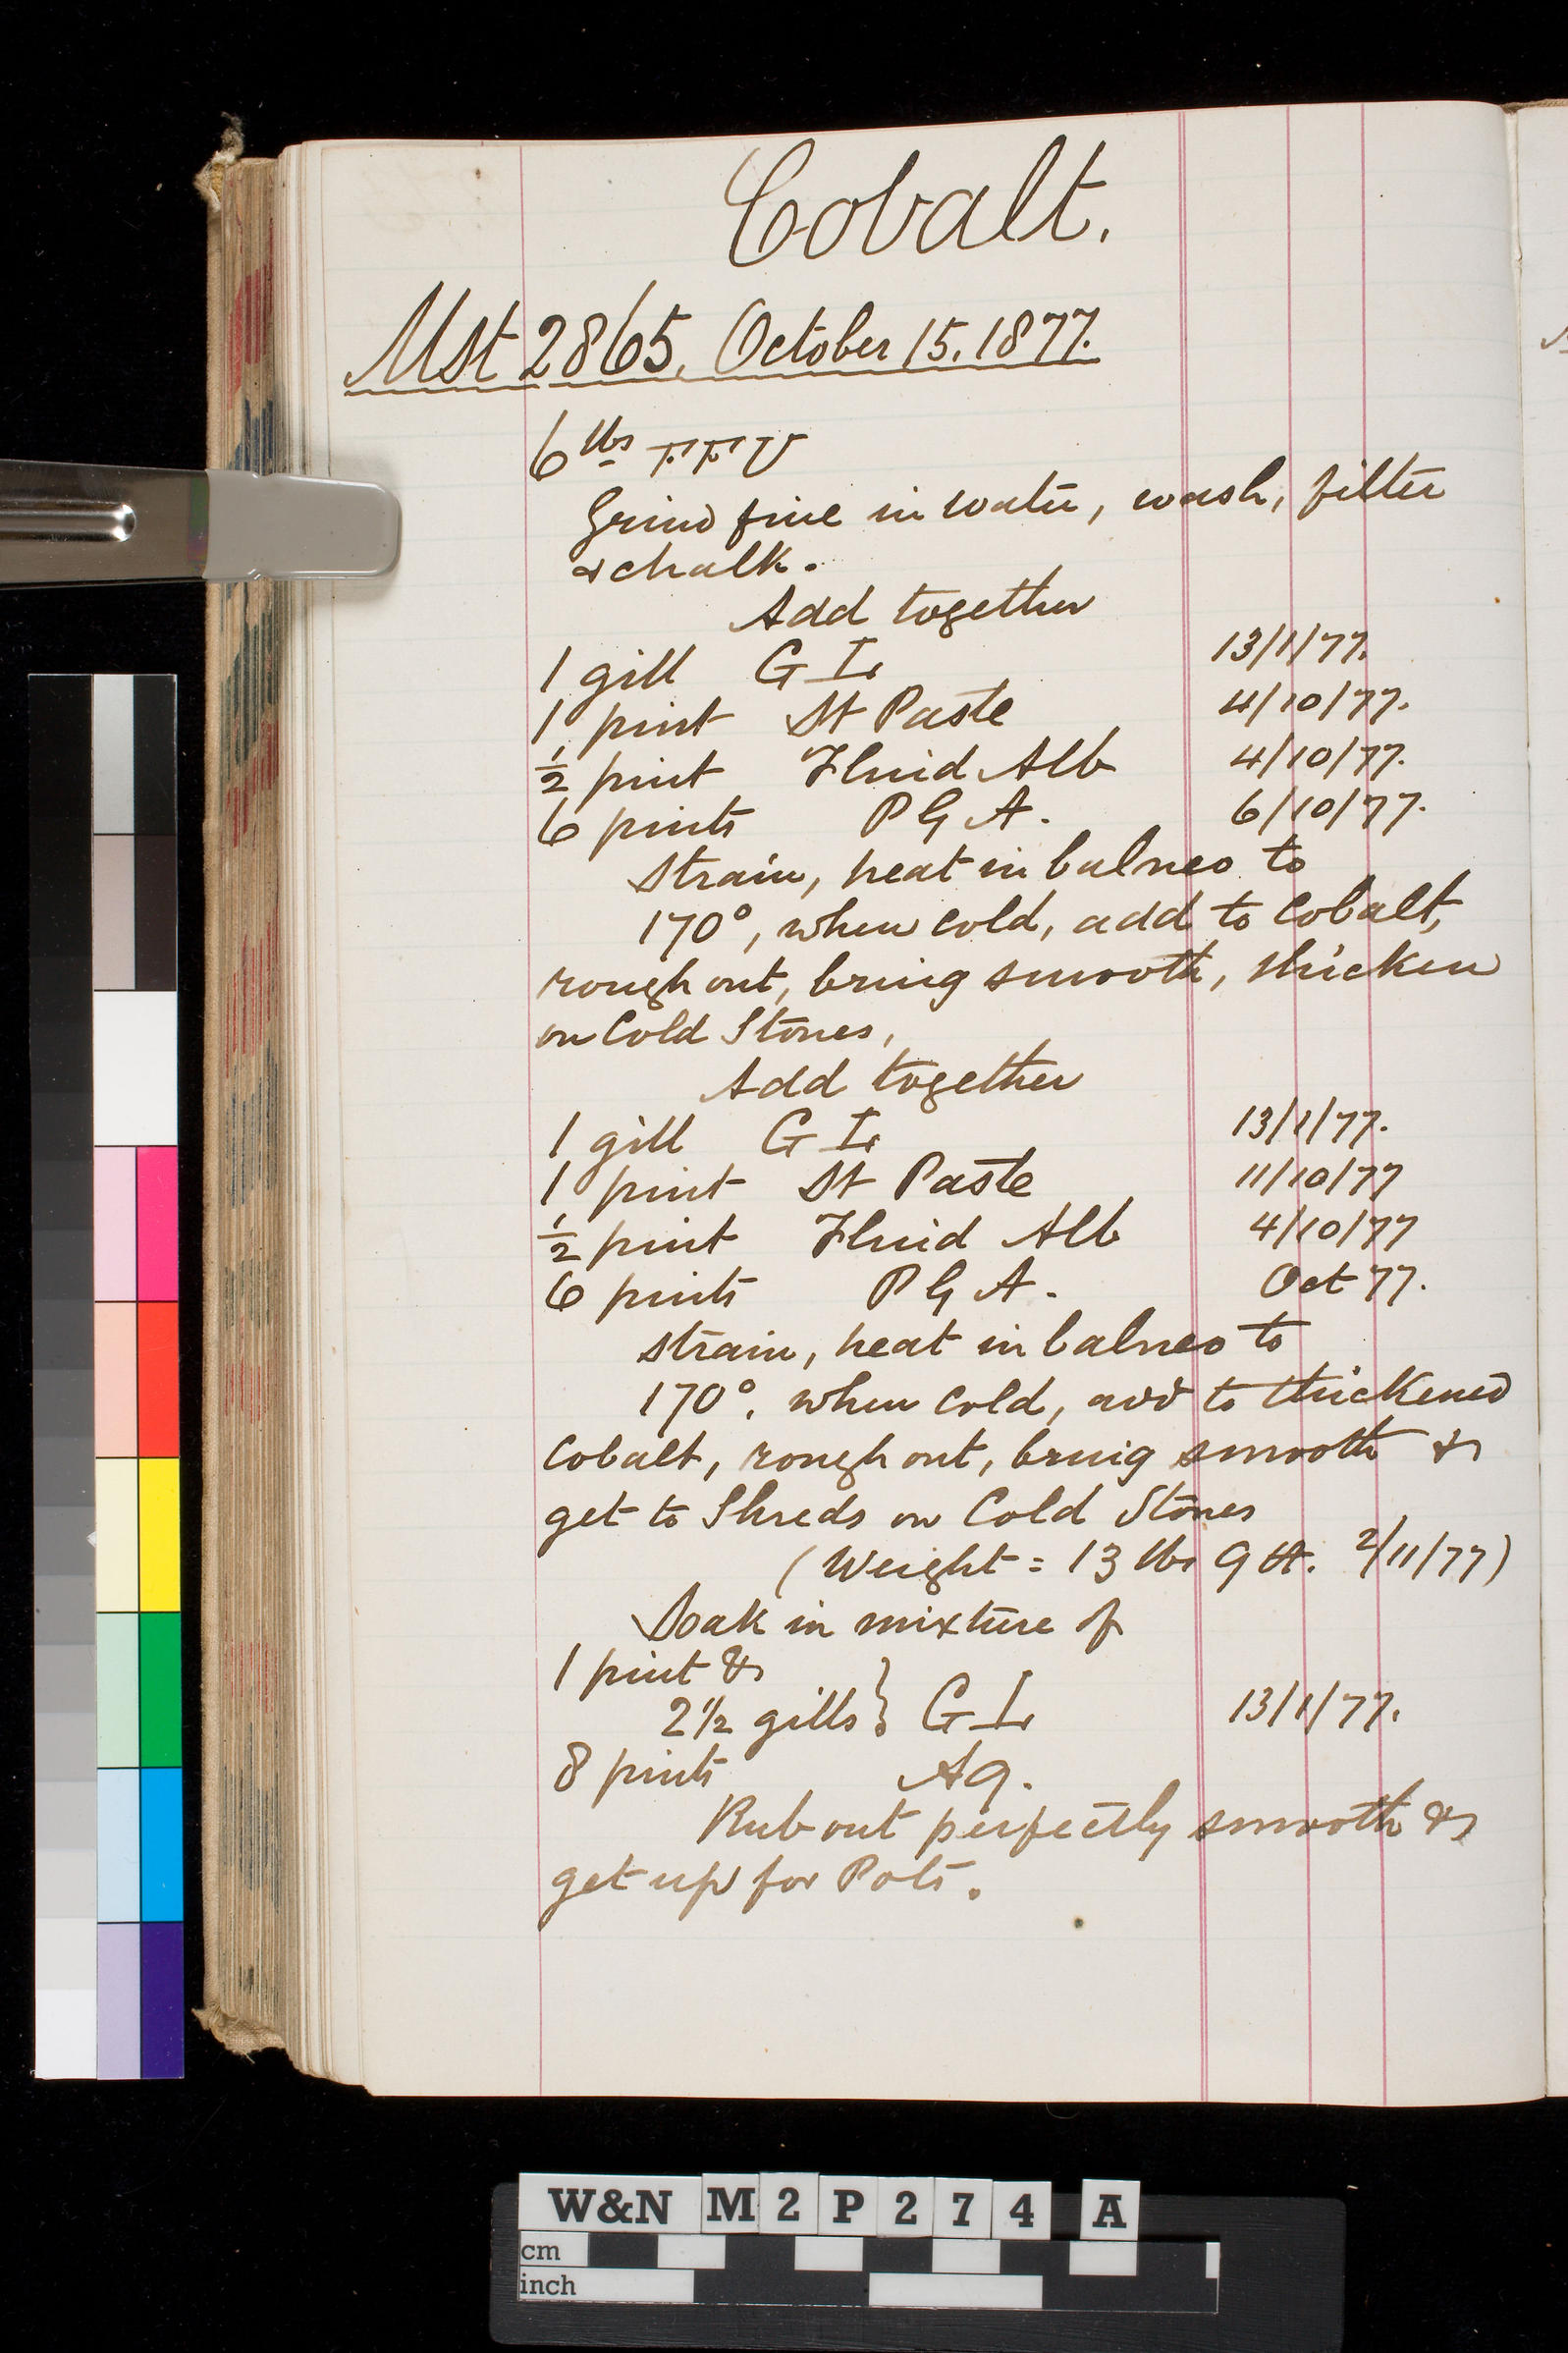 Cobalt.
Mst 2865. October 15. 1877.
6 lbs FFU
Grind fine in water, wash, filter
& chalk.
Add together
1 gill GL 13/1/77.
1 pint St Paste 4/10/77.
½ pint Fluid Alb 4/10/77.
6 pints P G A. 6/10/77.
Strain, heat in balneo to
170°, when cold, add to Cobalt,
rough out, bring smooth, thicken
on Cold Stones,
Add together
1 gill GL 13/1/77.
1 pint St Paste 11/10/77
½ pint Fluid Alb 4/10/77
6 pints P G A. Oct 77.
Strain, heat in balneo to
170°. when cold, add to thickened
Cobalt, rough out, bring smooth &
get to Shreds on Cold Stones
(Weight = 13 lbs 9 2/11/77)
Soak in mixture of
1 pint &
2½ gills } GL 13/1/77.
8 pints Aq.
Rub out perfectly smooth &
get up for Pots.
W&N M2P274 A
cm
inch